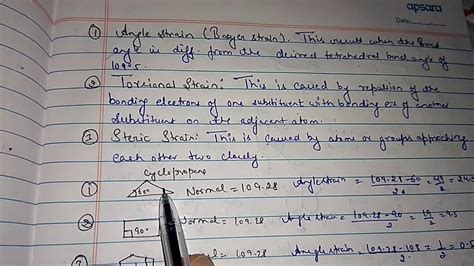 apsara
Date:
① Angle strain (Baeyer strain). This result when the bond
angle is diff. from the desired tetrahedral bond angle of
109.5.
② Torsional Strain: This is caused by repulsion of the
bonding electrons of one substituent with bonding es of another
substituent on the adjacent atom.
③ Steric Strain: This is caused by atoms or groups approching
each other two closely.
cyclopropane
① 60° Normal = 109.28 Angle strain = 109.28-60/2 = 49/2 = 24.
② 90° Normal = 109.28 Angle strain = 109.28-90/2 = 19/2 = 9.5
109.28 Angle strain = 109.28-108/2 = 1/2 = 0.